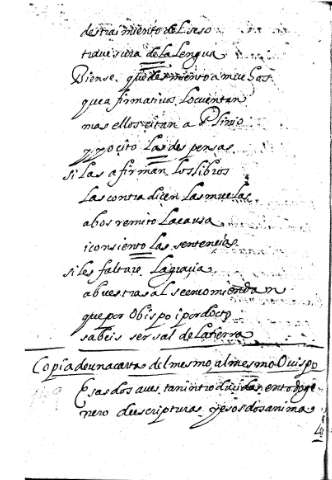 destraimiento del seso
travesura de la lengua
Biense que desmiento a muchos
que afirmativos lo cuentan
mas ellos citan a Plinio
y yo cito las despensas
si las afirman los libros
las contradicen las muelas
a bos remito la causa
i consiento las sentencias
si les faltare la gracia
a buestra sal se encomiendan
que por Obispo i por docto
sabeis ser sal de la tierra
Copia de una carta del mesmo, al mesmo Ouispo
Esas dos aves, tan introducidas, en todo ge
nero de escripturas, y esos dos anima